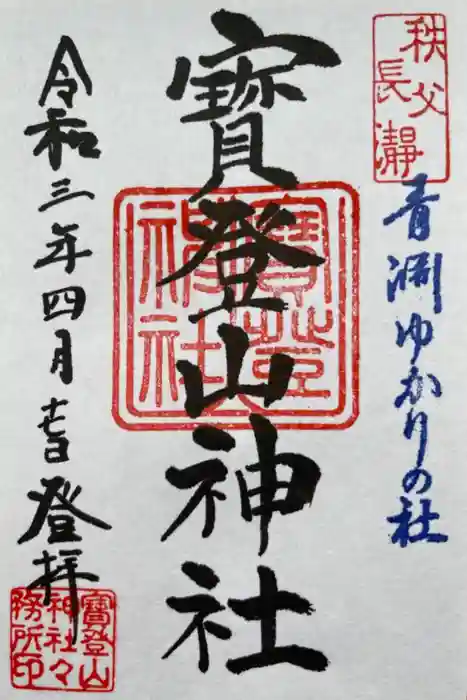 秩父
長瀞
青淵ゆかりの社
寶登山神社
令和三年四月 登拝
寶登山
神社々
務所印